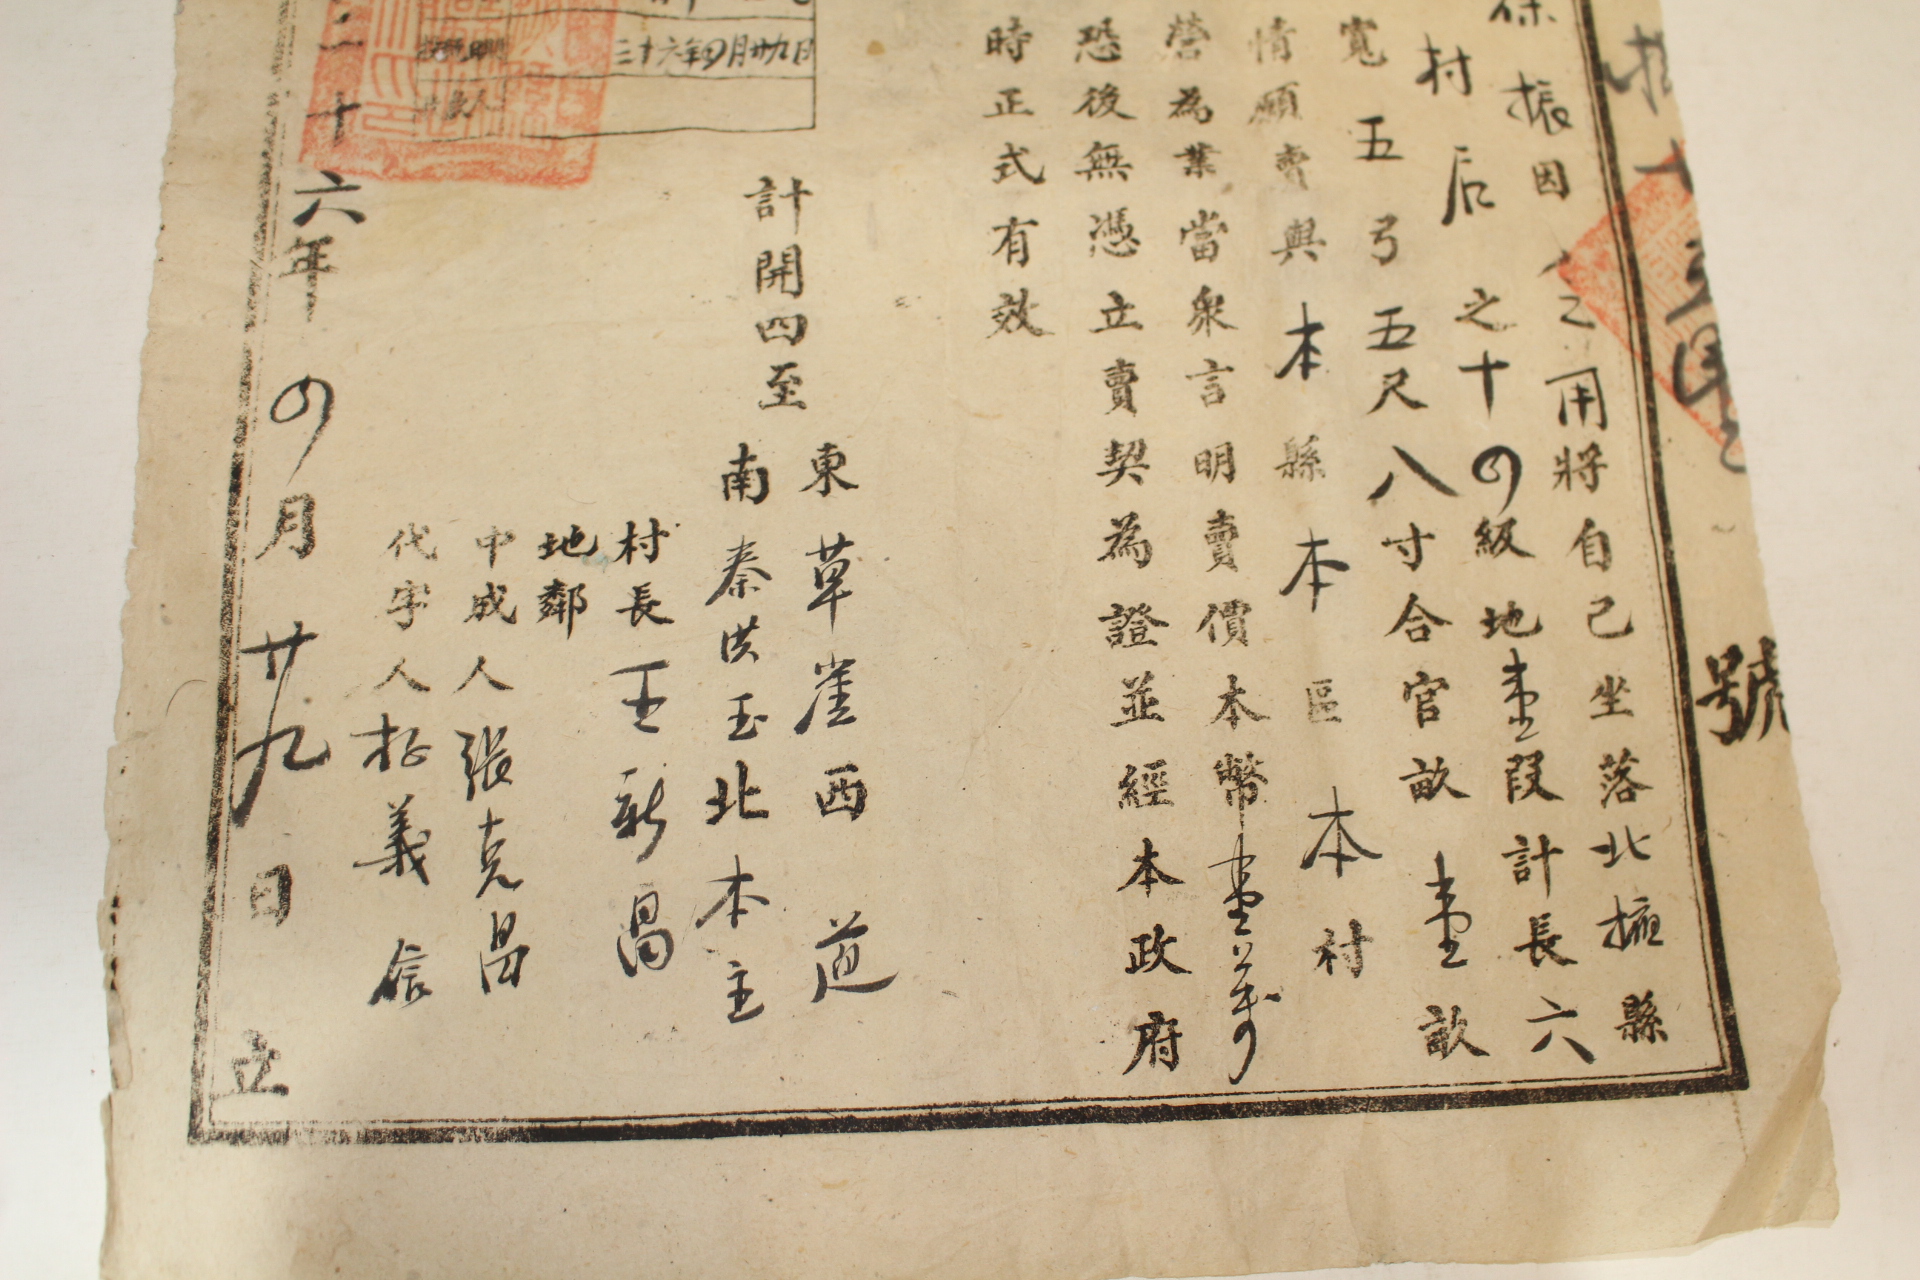 號
保振因人之用將自己坐落北掖縣
村后之十四級地壹段計長六
寬五弓五尺八寸合官畝壹畝
情願賣與本縣本區本村
營為業當衆言明賣價本幣壹萬
恐後無憑立賣契為證並經本政府
時正式有效
計開四至
東草崖西道
南秦洪玉北本主
村長王新昌
地鄰
中成人張克昌
代字人 義信
三十六年四月廿九日
二十六年四月廿九日立